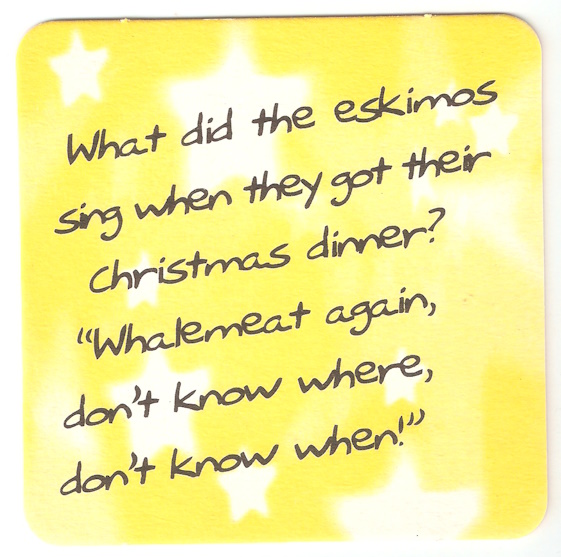 What did the eskimos
sing when they got their
christmas dinner?
“Whalemeat again,
don't know where,
don't know when!”